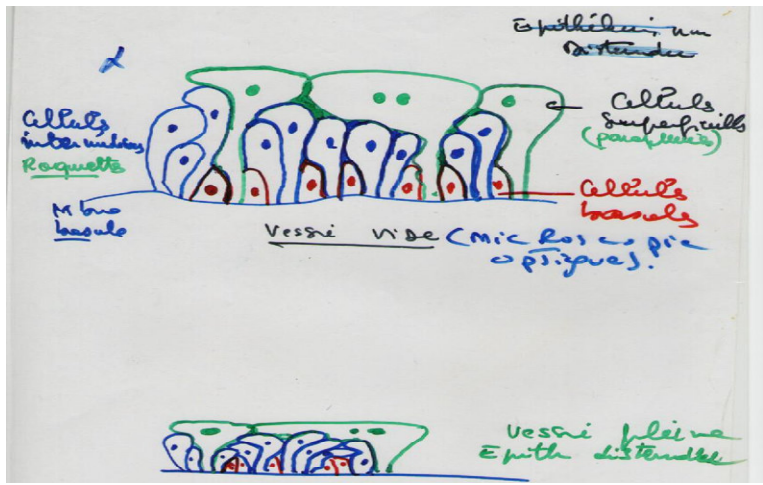 Epithélium non
Distendu
Cellules
intermédiaires
Raquette
Cellules
superficielles
(parapluies)
Cellules
basales
Mbne
basale
Vessie vide (Microscopie
optique).
Vessie pleine
Epith distendu